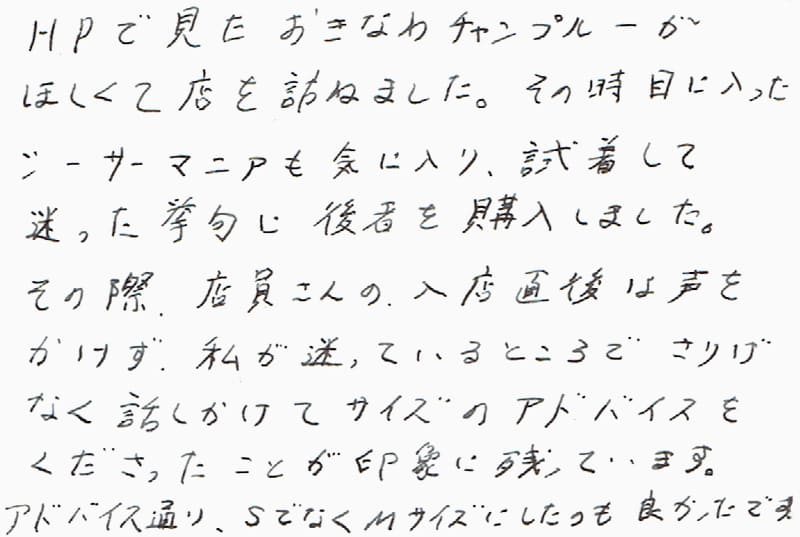 HPで見た おきなわチャンプルーが
ほしくて店を訪ねました。その時目に入った
シーサーマニアも気に入り、試着して
迷った挙句に 後者を購入しました。
その際、店員さんの、入店直後は声を
かけず、私が迷っているところで さりげ
なく話しかけてサイズのアドバイスを
くださったことが印象に残っています。
アドバイス通り、SでなくMサイズにしたのも良かったです